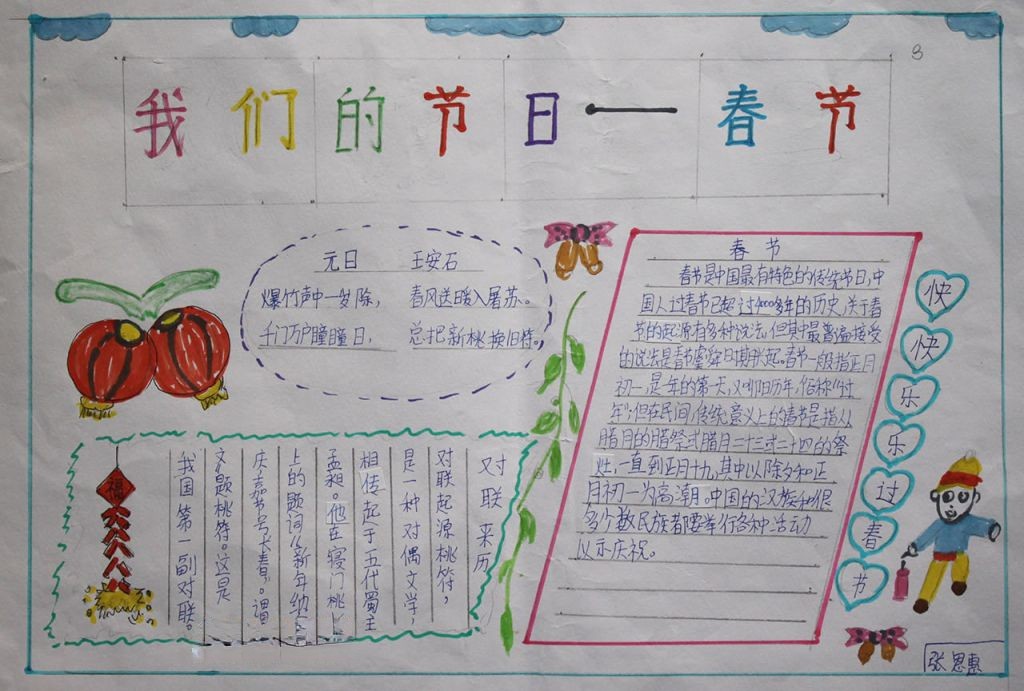 我们的节日——春节
3
元日 王安石
爆竹声中一岁除, 春风送暖入屠苏。
千门万户瞳瞳日, 总把新桃换旧符。
对联来历
对联起源桃符,
是一种对偶文学,
相传起于五代蜀主
孟昶。他在寝门桃
上的题词“新年纳
庆,嘉节号长春”,谓
文“题桃符。这是
我国第一副对联。
福
春节
春节是中国最有特色的传统节日,中
国人过春节已超过4000多年的历史,关于春
节的起源有多种说法,但其中最普遍接受
的说法是春节虞舜日期兴起。春节一般指正月
初一,是一年的第一天,又叫阴历年,俗称“过
年”;但在民间,传统意义上的春节是指从
腊月的腊祭式腊月二十三或二十四的祭
灶,一直到正月十九,其中以除夕和正
月初一为高潮。中国的汉族和很
多个数民族都要举行各种活动
以示庆祝。
快快乐乐过春节
张恩惠